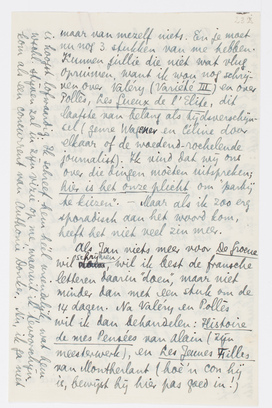 maar van mezelf niets. En je moet
nu nog 3 stukken van me hebben.
Kunnen jullie die niet wat vlug
opruimen, want ik wou nog schrij-
ven over Valéry (Variété III) en over
Pollès, Les Gueux de l'Elite, dit
laatste van belang als tijdverschijn-
sel (genre Wagener en Céline door
elkaar of de woedend-rochelende
journalist). Ik vind dat wij ons
over die dingen moeten uitspreken;
hier is het onze plicht om "partij
te kiezen". — Maar als ik zoo erg
sporadisch aan het woord kom,
heeft het niet veel zin meer.
Als Jan niets meer voor De Groene
wil schrijven, wil ik best de fransche
letteren daarin doen, maar niet
minder dan met een stuk om de
14 dagen. Na Valéry en Pollès
wil ik dan behandelen: Histoire
de mes Pensées van Alain (zijn
meesterwerk), en Les Jeunes Filles
van Montherlant (hoe 'n con hij
is, bewijst hij hier pas goed in!)